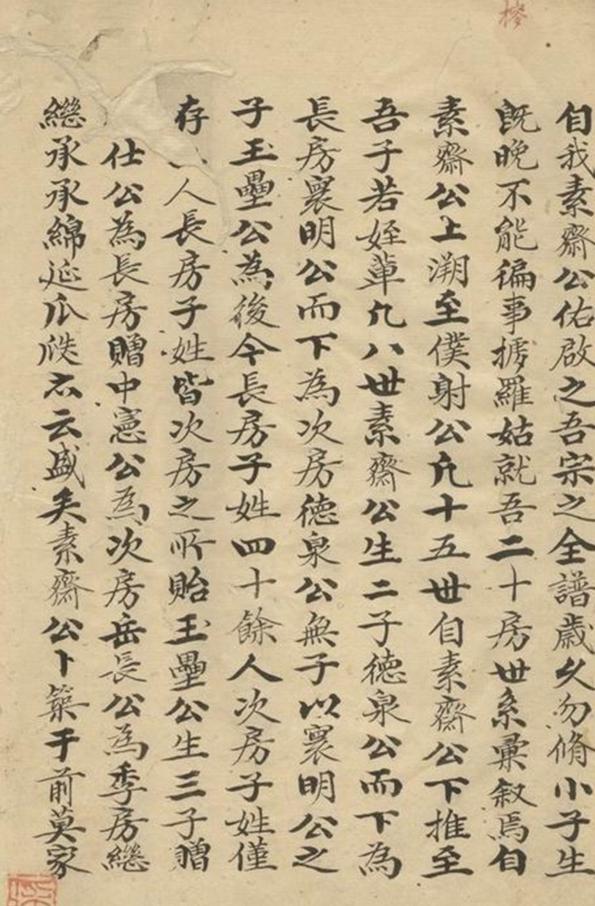 自我素齋公佑啟之吾宗之全譜歲久勿脩小子生
旣晚不能徧事摭羅姑就吾二十房世系彙敘焉自
素齋公上溯至僕射公凢十五世自素齋公下推至
吾子若姪輩凢八世素齋公生二子德泉公而下為
長房襄明公而下為次房德泉公無子以襄明公之
子玉壘公為後今長房子姓四十餘人次房子姓僅
存人長房子姓皆次房之所貽玉壘公生三子贈
仕公為長房贈中憲公為次房岳長公為季房繼
繼承承綿延瓜瓞亦云盛矣素齋公卜築于前莫家